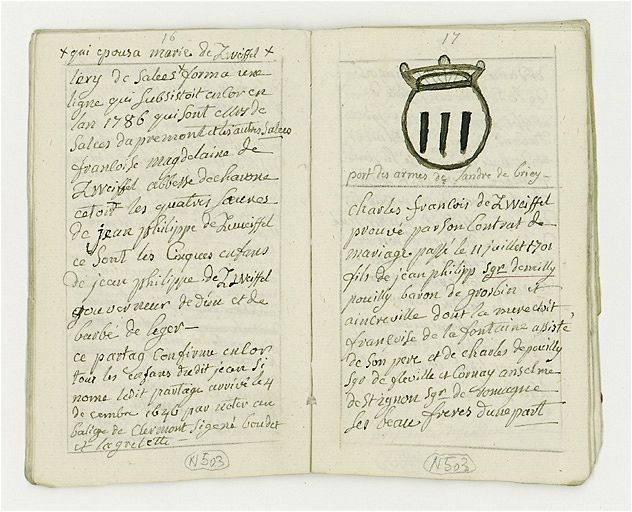 16
+ qui epousa marie de Zweiffel +
lery de sales + forma une
ligne qui subsistoit encor en
lan 1786 qui sont ceux de
sales dapremont et les autres sales
francoise magdelaine de
Zweiffel abbesse de
cetoit les quatres soeures
de jean philippe de Zweiffel
ce sont les Cinques enfans
de jean philippe de Zweiffel
gouverneur de dieu et de
barbé de leger
ce partag Confirme encor
tous les enfans dudit jean si
nome ledit partage arrivé le 4
decembre 1646 par noter au
baliage de Clermont signé boudet
et lagrelette
N503
17
port les armes de landre de briey
charles francois de Zweiffel
prouvé par son Contrat de
mariage passé le 11 juillet 1701
fils de jean philipp sgr demilly
pouilly baron de grosbin et
aincreville dont la mere etoit
francoise de la fontaine assisté
de son pere et de charles de pouilly
sgr de gleville et Cornay anselme
de st ignon sgr de Romagne
ses beau freres dune part
N503